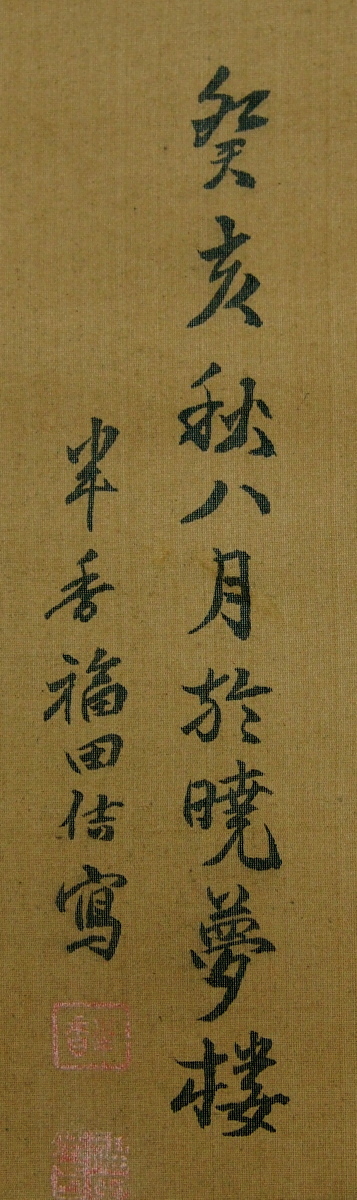 癸亥秋八月於曉夢楼
半香福田佶寫